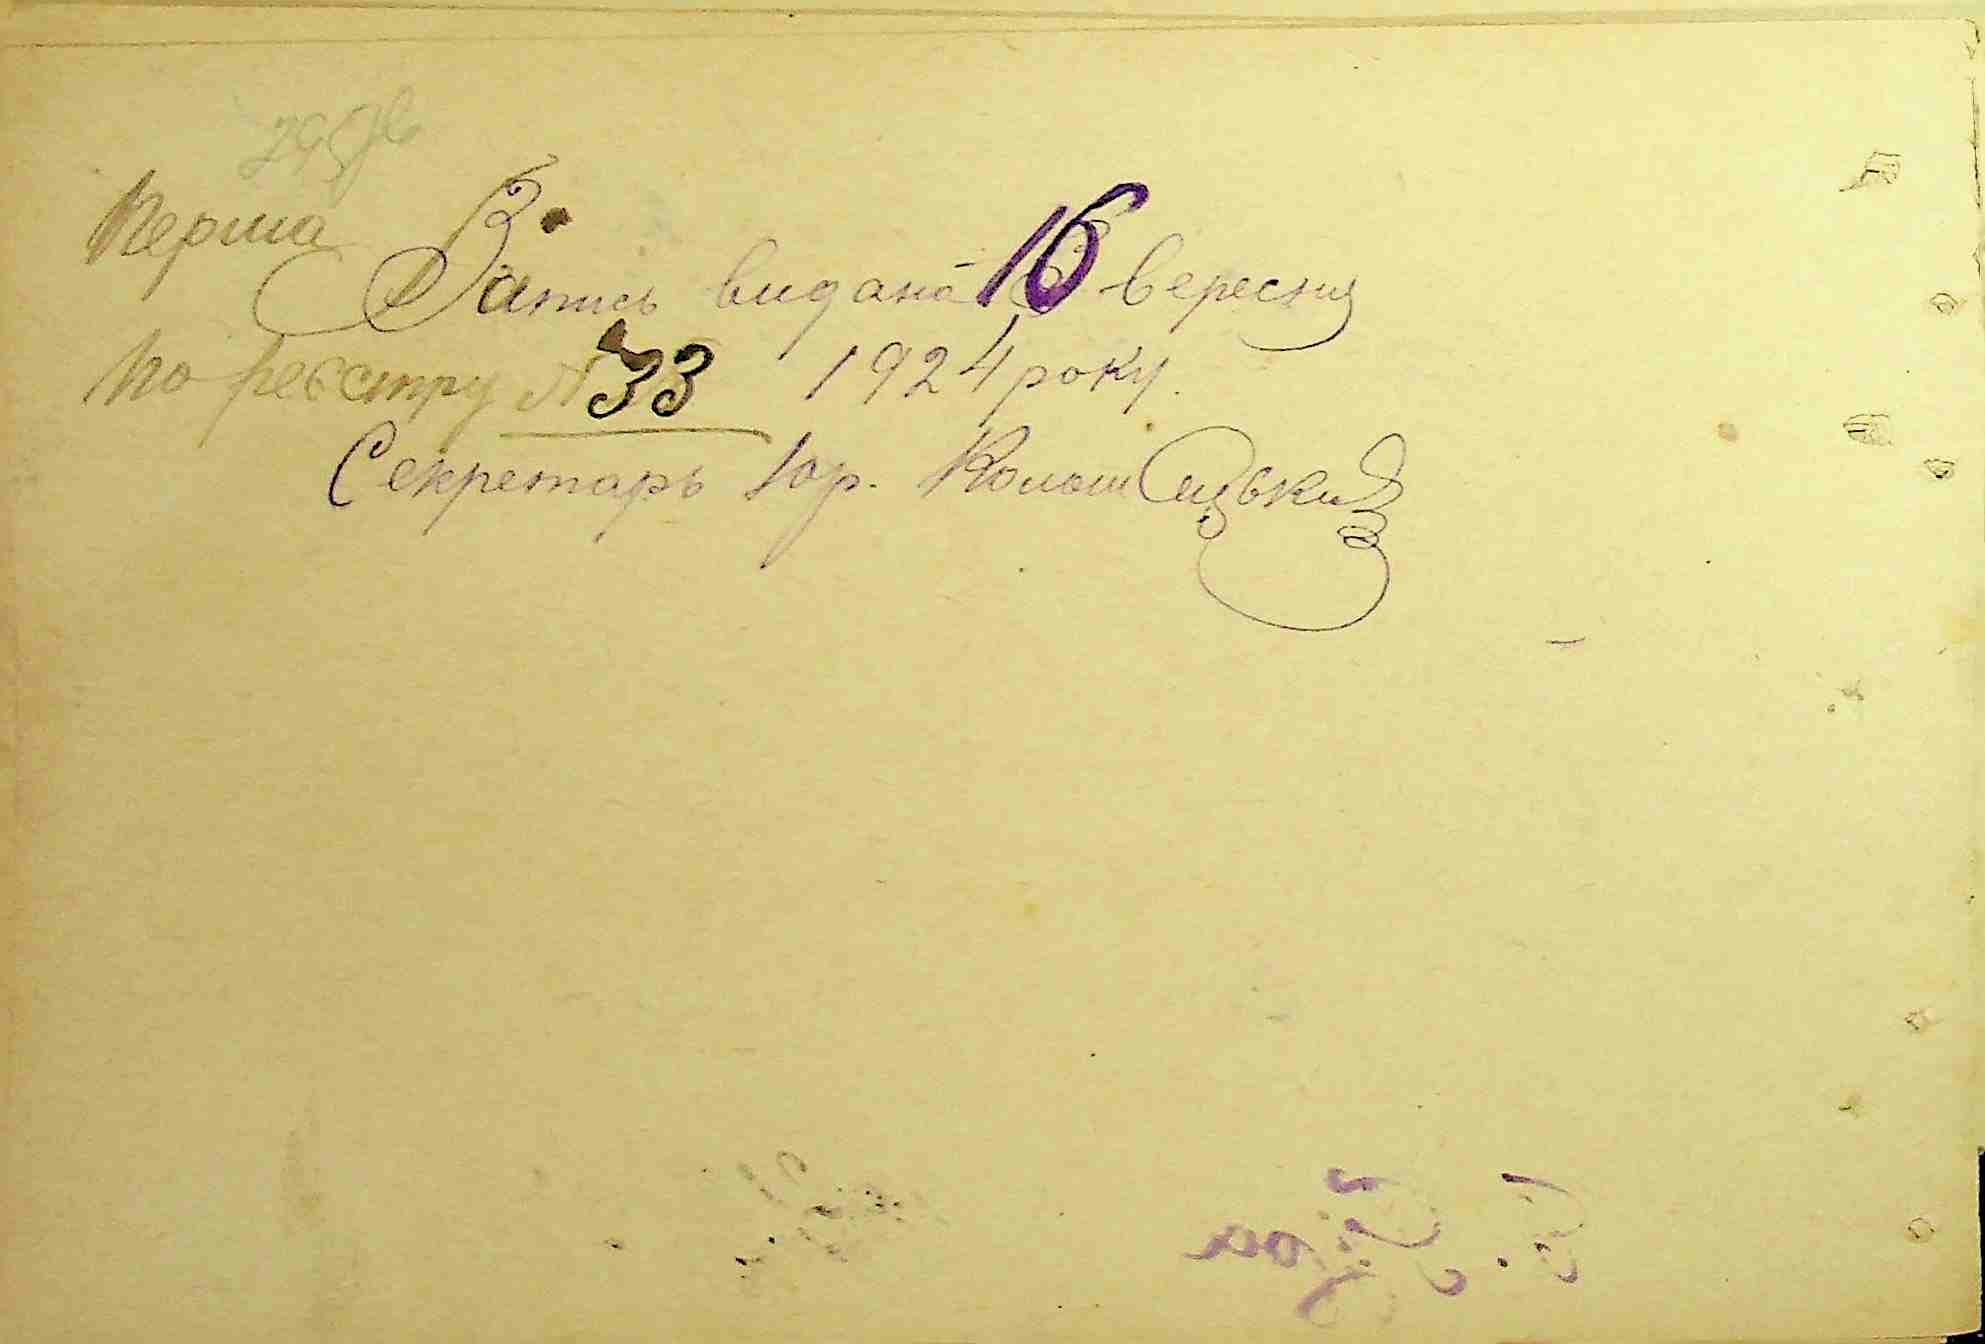 Перша
Запись видана 16 вересня
По реєстру № 33 1924 року.
Секретарь Юр.